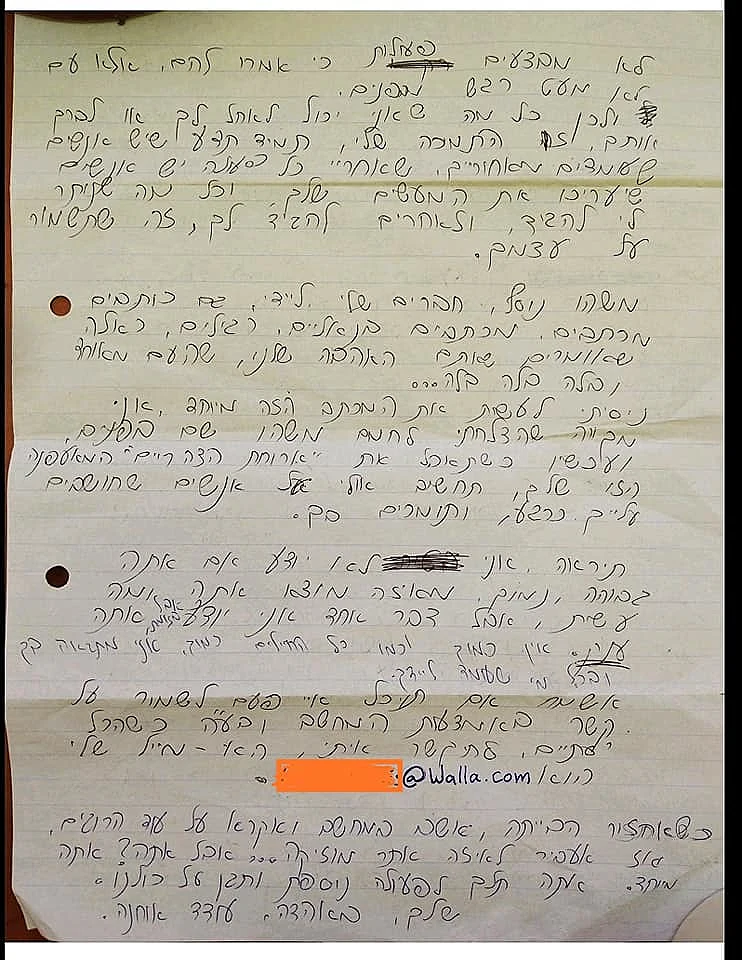 לא מבצעים פעולות כי אמרו להם, אלא עם
לא מעט רגש מבפנים.
ולכן כל מה שאני יכול לאחל לך או לברך
אותם, זו התמיכה שלי, תמיד תדע שיש אנשים
שעומדים מאחוריים, שאחריי כל פעולה יש אנשים
שיעריכו את המעשים שלך, וכל מה שנותר
לי להגיד, ולאחרים להגיד לך, זה שתשמור
על עצמך.
משהו נוסף, חברים שלי לידי, גם כותבים
מכתבים, מכתבים בנאליים, רגילים, כאלה
שאומרים שאתם האהבה שלנו, שהעם מאוחד
ובלה בלה בלה...
ניסיתי לעשות את המכתב הזה מיוחד, אני
מקווה שהצלחתי לחמם משהו שם בפנים,
ועכשיו כשתאכל את "ארוחת הצהריים" המאפנה
הזו שלך, תחשיב אולי על אנשים שחושבים
עלייך כרגע, ותומכים בך.
תיראה, אני לא יודע אם אתה
גבוהה, נמוך, מאיזה מוצא אתה ומה
עשית, אבל דבר אחד אני יודע אתה
ענק. אין כמוך וכמו כל החיילים כמוך, אני מתגאה בך
ובכל מי שעומד לידך.
אשמח אם תוכל איי פעם לשמור על
קשר באמצעות המחשב ובע"ה כשהכל
יסתיים, תתקשר איתי, הא-מייל שלי
הוא @walla.com
כשאחזור הבייתה, אשב במחשב ואקרא על עוד הרוגים,
אז אעביר לאיזה אתר מוזיקה... אבל אתה? אתה
מיוחד. אתה תלך לפעולה נוספת ותגן על כולנו.
שלך, באהבה,